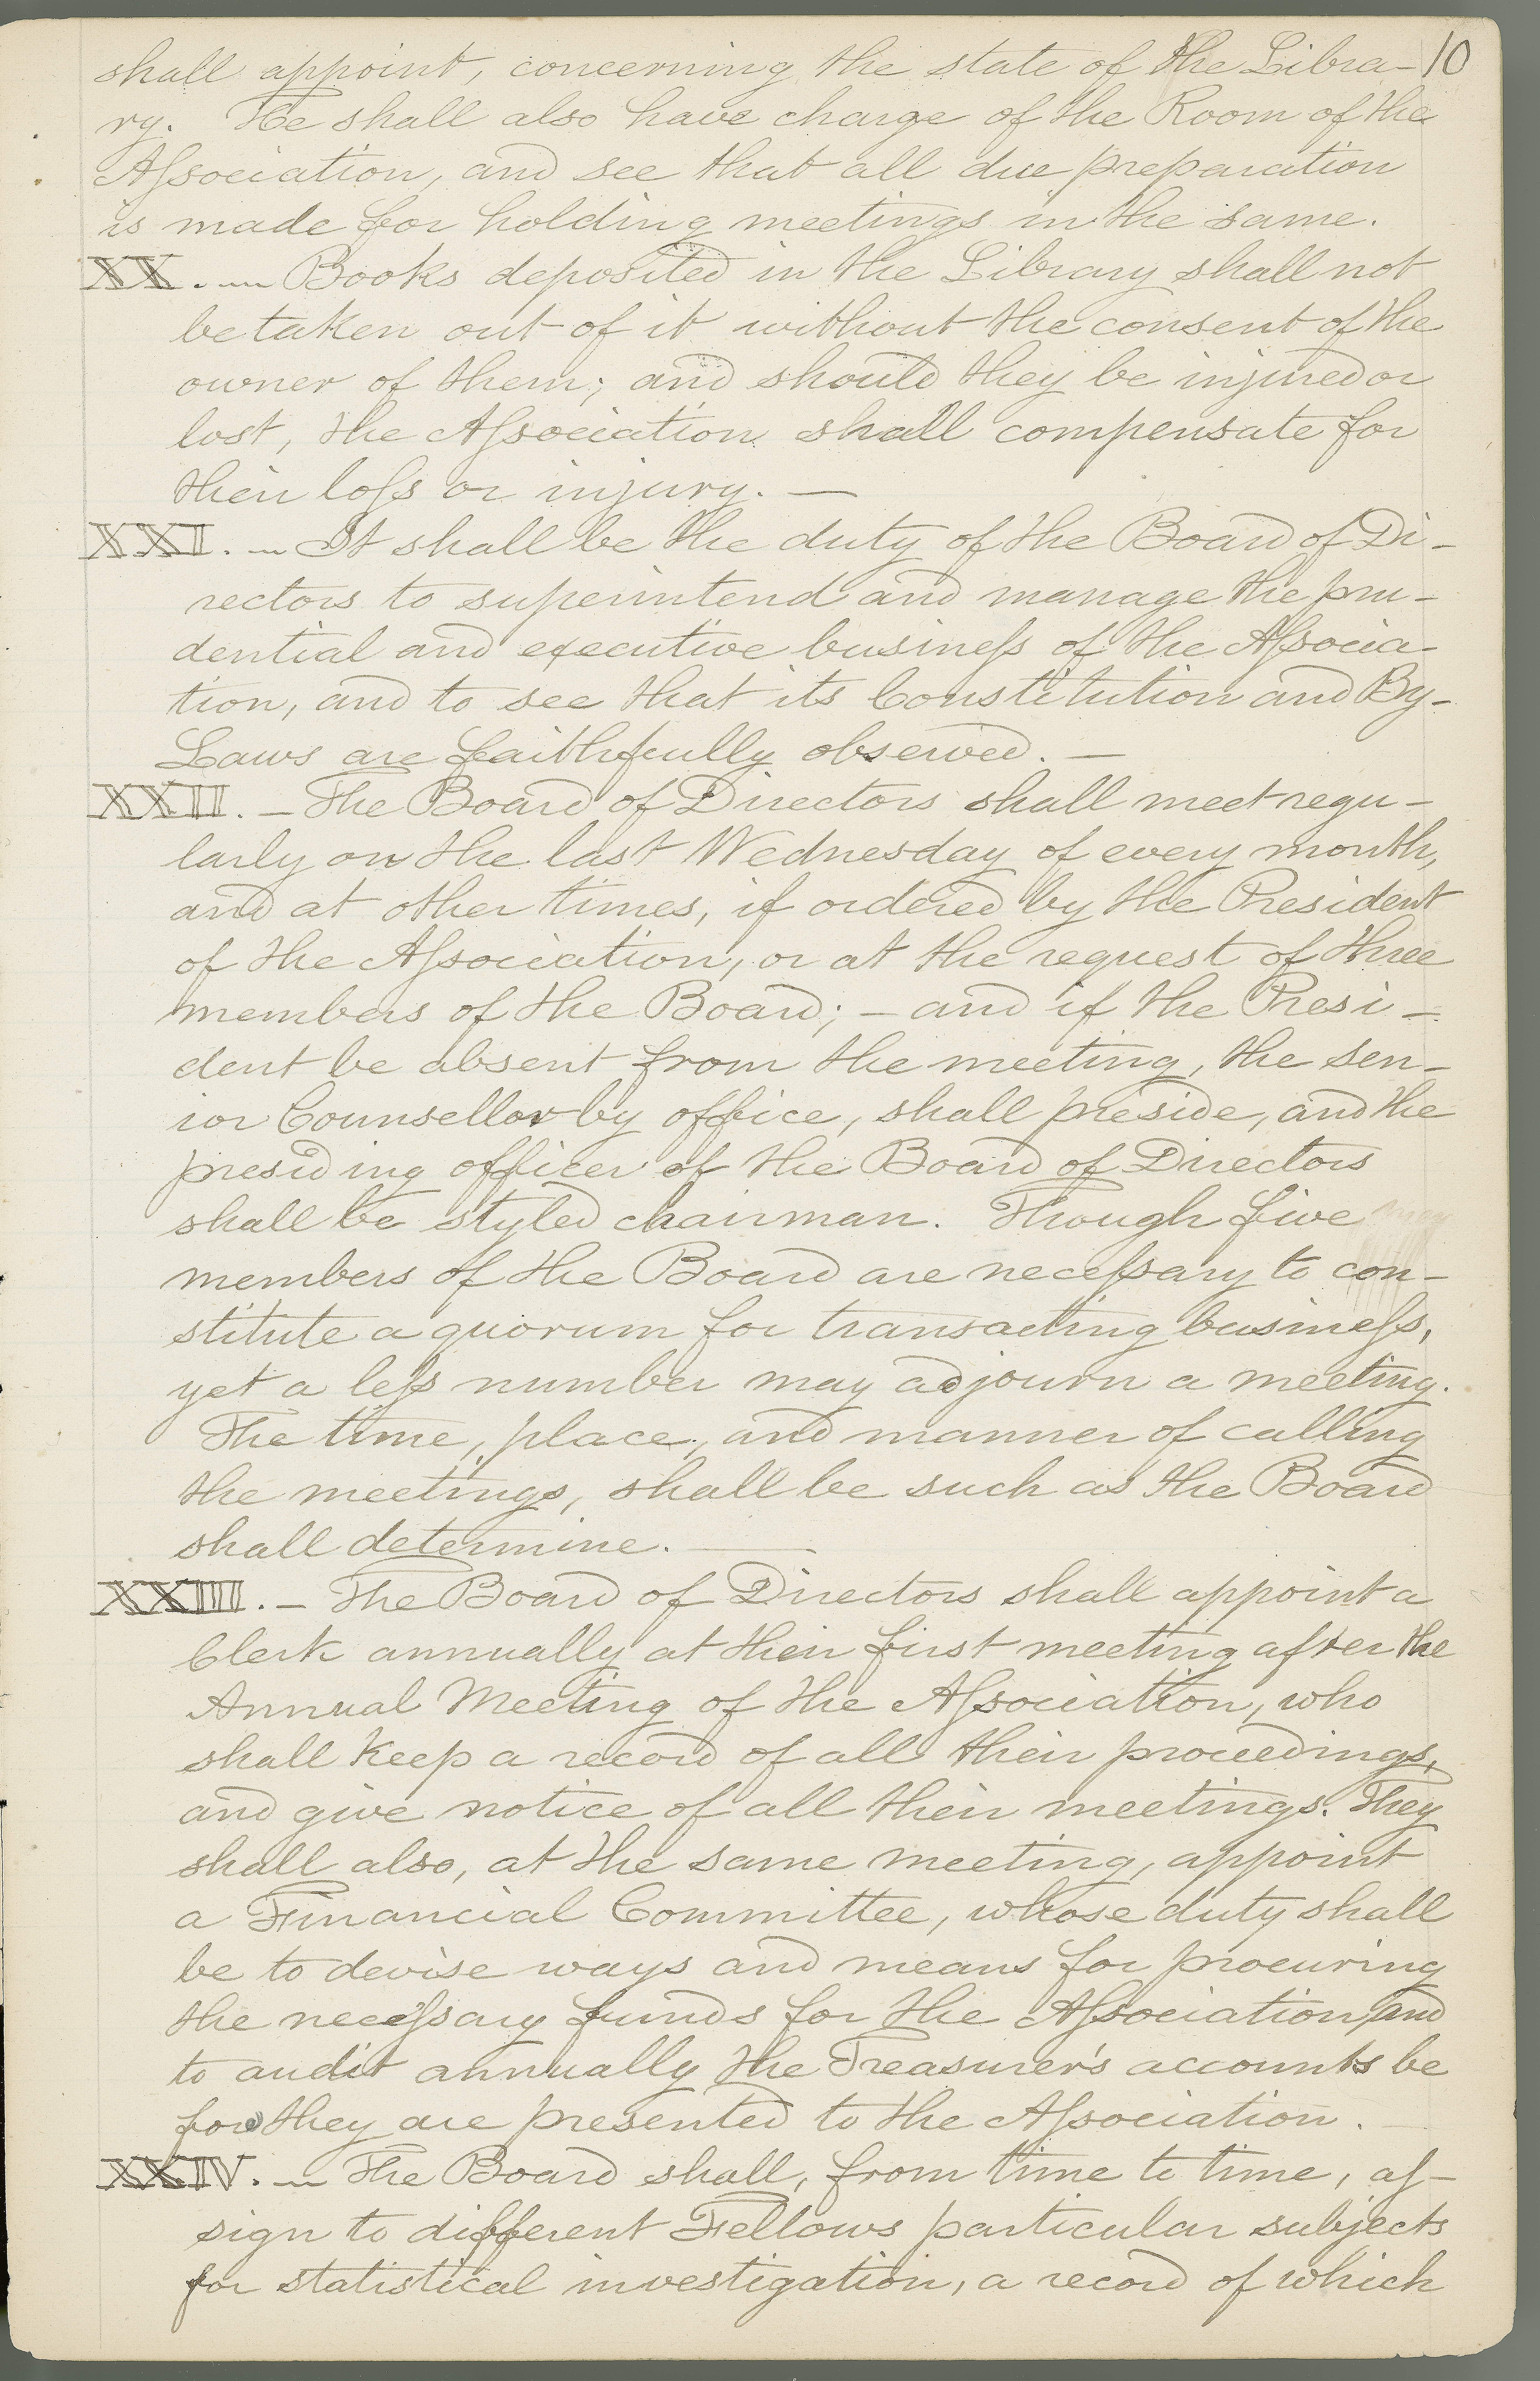 shall appoint, concerning the state of the Libra- 10
ry. He shall also have charge of the Room of the
Aſsociation, and see that all due preparation
is made for holding meetings in the same.
XX. — Books deposited in the Library shall not
be taken out of it without the consent of the
owner of them; and should they be injured or
lost, the Aſsociation shall compensate for
their loſs or injury. —
XXI. — It shall be the duty of the Board of Di-
rectors to superintend and manage the pru-
dential and executive busineſs of the Aſsocia-
tion, and to see that its Constitution and By-
Laws are faithfully observed. —
XXII. — The Board of Directors shall meet regu-
larly on the last Wednesday of every month,
and at other times, if ordered by the President
of the Aſsociation, or at the request of three
members of the Board; — and if the Presi-
dent be absent from the meeting, the sen-
ior Counsellor by office, shall preside, and the
presiding officer of the Board of Directors
shall be styled chairman. Though five
members of the Board are neceſsary to con-
stitute a quorum for transacting busineſs,
yet a leſs number may adjourn a meeting.
The time, place, and manner of calling
the meetings, shall be such as the Board
shall determine. —
XXIII. — The Board of Directors shall appoint a
Clerk annually at their first meeting after the
Annual Meeting of the Aſsociation, who
shall keep a record of all their proceedings,
and give notice of all their meetings. They
shall also, at the same meeting, appoint
a Financial Committee, whose duty shall
be to devise ways and means for procuring
the neceſsary funds for the Aſsociation, and
to audit annually the Treasurer's accounts be
fore they are presented to the Aſsociation.
XXIV. — The Board shall, from time to time, aſ-
sign to different Fellows particular subjects
for statistical investigation, a record of which